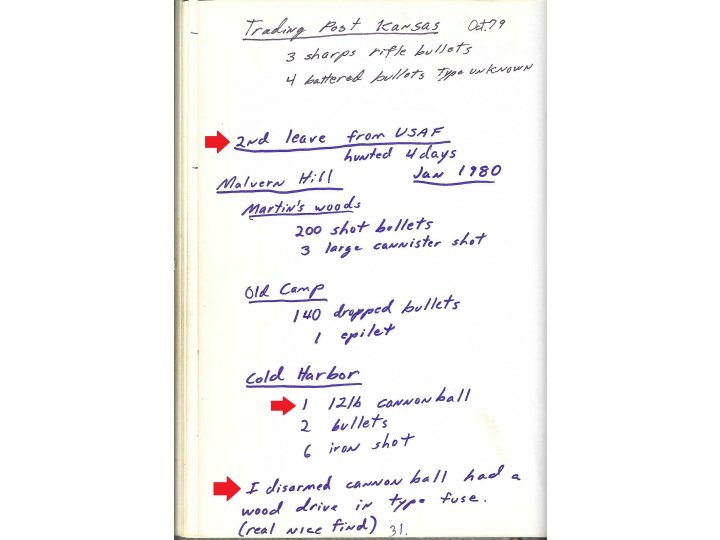 Trading Post Kansas Oct.79
3 sharps rifle bullets
4 battered bullets type unknown
2nd leave from USAF
hunted 4 days
Malvern Hill Jan 1980
Martin's woods
200 shot bullets
3 large cannister shot
Old Camp
140 dropped bullets
1 epilet
Cold Harbor
1 12lb cannon ball
2 bullets
6 iron shot
I disarmed cannon ball had a
wood drive in type fuse.
(real nice find) 31.